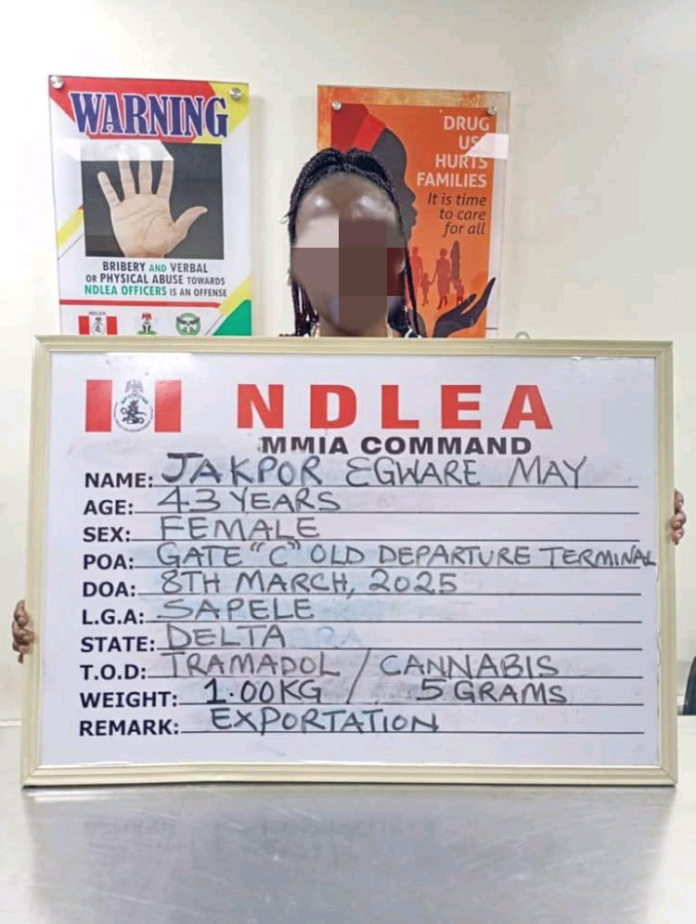 WARNING
BRIBERY AND VERBAL
OR PHYSICAL ABUSE TOWARDS
NDLEA OFFICERS IS AN OFFENSE
NDLEA
DRUG
US
HURTS
FAMILIES
It is time
to care
for all
NDLEA
MMIA COMMAND
NAME: JAKPOR EGWARE MAY
AGE: 43 YEARS
SEX: FEMALE
POA: GATE "C" OLD DEPARTURE TERMINAL
DOA: 8TH MARCH, 2025
L.G.A: SAPELE
STATE: DELTA
T.O.D: TRAMADOL / CANNABIS
WEIGHT: 1.00KG / 5 GRAMS
REMARK: EXPORTATION